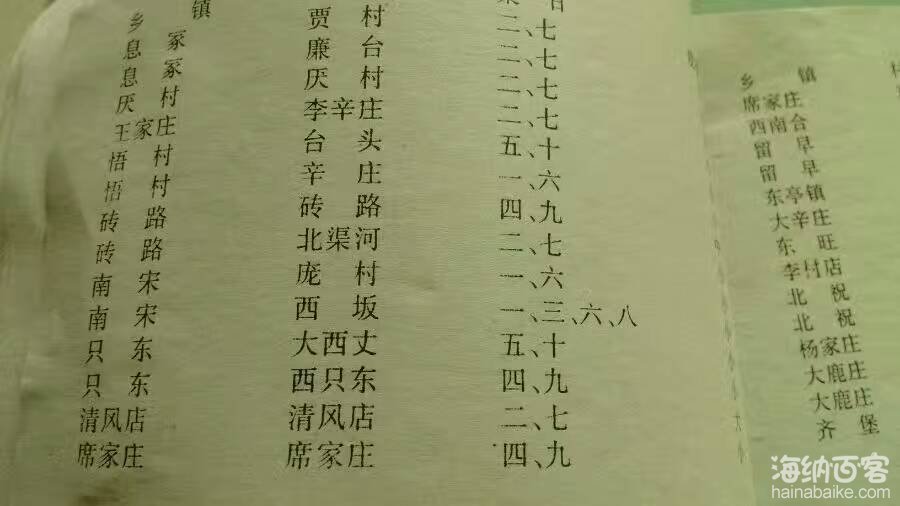 乡 镇
息冢 贾村 二、七
息冢 廉台 二、七
厌村 厌村 二、七
王家庄 李辛庄 二、七
悟村 台头 五、十
悟村 辛庄 一、六
砖路 砖路 四、九
砖路 北渠河 二、七
南宋 庞村 一、六
南宋 西坂 一、三、六、八
只东 大西丈 五、十
只东 西只东 四、九
清风店 清风店 二、七
席家庄 席家庄 四、九
乡 镇
席家庄
西南合
留早
留早
东亭镇
大辛庄
东旺
李村店
北祝
北祝
杨家庄
大鹿庄
大鹿庄
齐堡
海纳百客
hainabaike.com